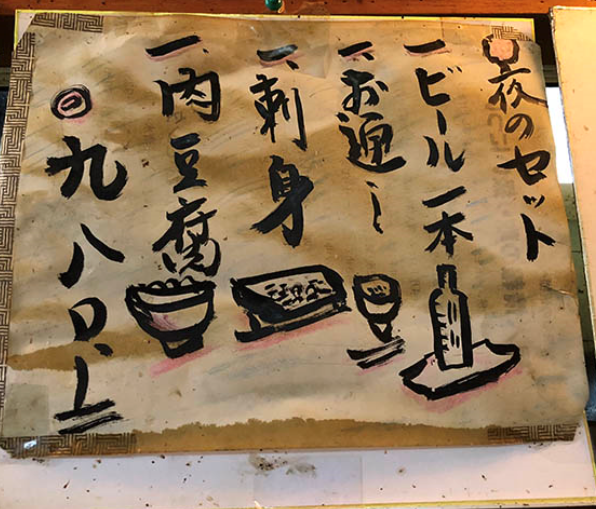 夜のセット
一、ビール一本
一、お通し
一、刺身
一、肉豆腐
九八〇、